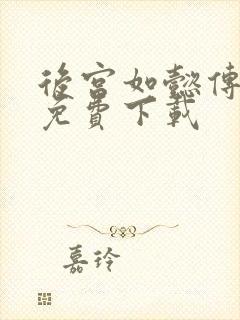 後宮如懿傳
免費下載
嘉玲